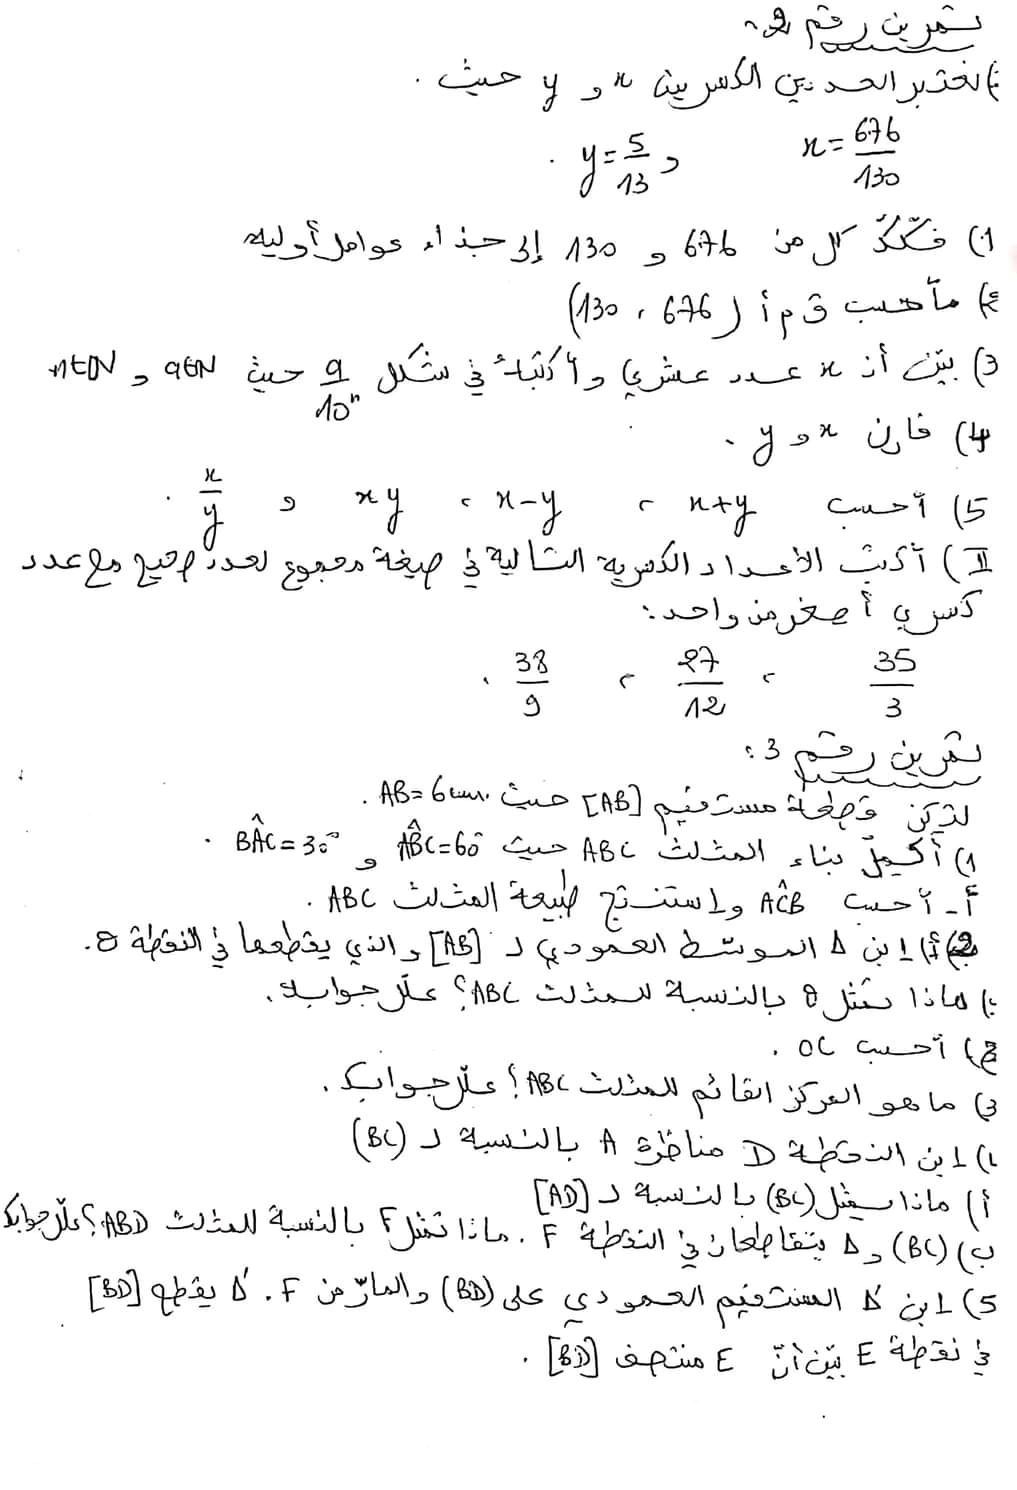 تمرين رقم 2:
I) نعتبر العددين الكسريين x و y حيث .
x = 676/130 و y = 5/13 .
1) فكّك كل من 676 و 130 إلى جذاء عوامل أولية
2) أحسب ق م أ (676 ، 130)
3) بيّن أن x عدد عشري وأكتبه في شكل a/10ⁿ حيث a∈ℕ و n∈ℕ
4) قارن x و y .
5) أحسب x+y ، x-y ، xy و x/y .
II) أكتب الأعداد الكسرية التالية في صيغة مجموع لعدد صحيح مع عدد
كسري أصغر من واحد :
35/3 ، 27/12 ، 38/9 .
تمرين رقم 3 :
لتكن قطعة مستقيم [AB] حيث AB=6cm .
1) أكمل بناء المثلث ABC حيث AB̂C=60° و BÂC=30° .
أ- أحسب AĈB واستنتج طبيعة المثلث ABC .
2) أ) ابن Δ الموسّط العمودي لـ [AB] والذي يقطعها في النقطة O.
ب) ماذا تمثل O بالنسبة للمثلث ABC؟ علّل جوابك.
ج) أحسب OC .
3) ما هو المركز القائم للمثلث ABC؟ علّل جوابك.
4) ابن النقطة D مناظرة A بالنسبة لـ (BC)
أ) ماذا يمثل (BC) بالنسبة لـ [AD]
ب) (BC) و Δ يتقاطعان في النقطة F . ماذا تمثل F بالنسبة للمثلث ABD؟ علّل جوابك
5) ابن Δ' المستقيم العمودي على (BD) والمارّ من F. Δ' يقطع [BD]
في نقطة E بيّن أنّ E منتصف [BD] .